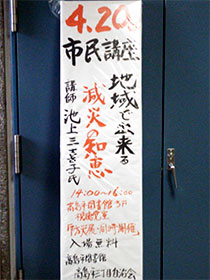 4.20
市民講座
地域で出来る
減災の知恵
講師 池上三喜子氏
14:00~16:00
高島平図書館
入場無料
高島平図書館